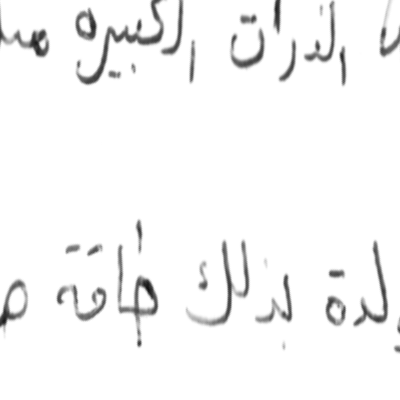 الذرات الكبيرة
لدة بذلك طاقة